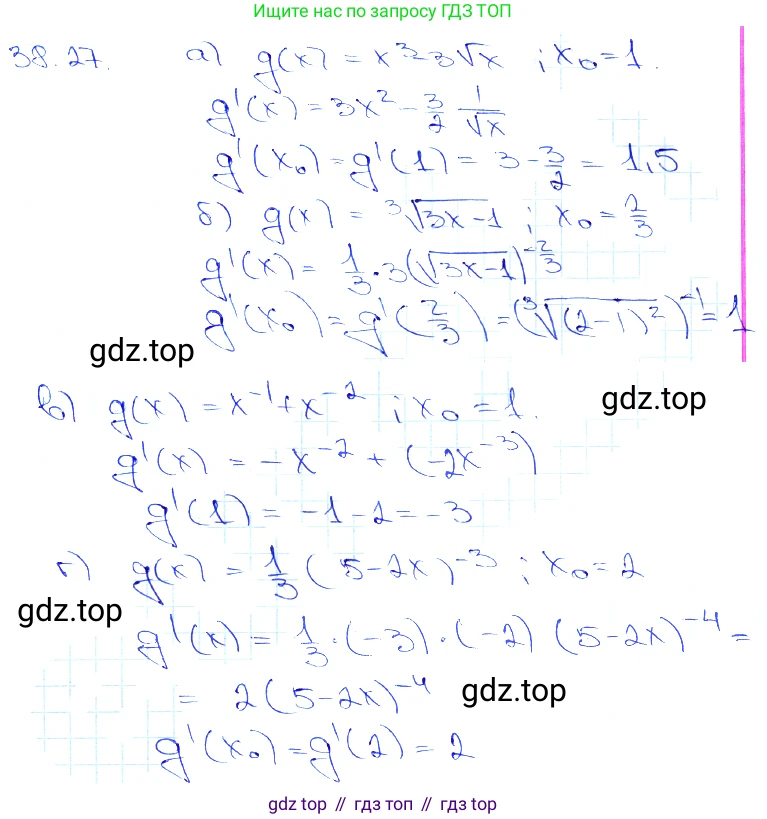 Ищите нас по запросу ГДЗ ТОП
38.27. а) g(x) = x³-3√x ; x₀ = 1.
g'(x) = 3x² - 3/2 1/√x
g'(x₀) = g'(1) = 3 - 3/2 = 1,5
б) g(x) = ³√(3x-1) ; x₀ = 2/3
g'(x) = 1/3 · 3(√(3x-1))^(-2/3)
g'(x₀) = g'(2/3) = (³√((2-1)²))⁻¹ = 1
gdz.top
в) g(x) = x⁻¹ + x⁻² ; x₀ = 1.
gdz.top
g'(x) = -x⁻² + (-2x⁻³)
g'(1) = -1 - 2 = -3
г) g(x) = 1/3 (5-2x)⁻³ ; x₀ = 2
gdz.top
g'(x) = 1/3 · (-3) · (-2) (5-2x)⁻⁴ =
= 2(5-2x)⁻⁴
gdz.top
g'(x₀) = g'(2) = 2
gdz top // гдз топ // gdz top